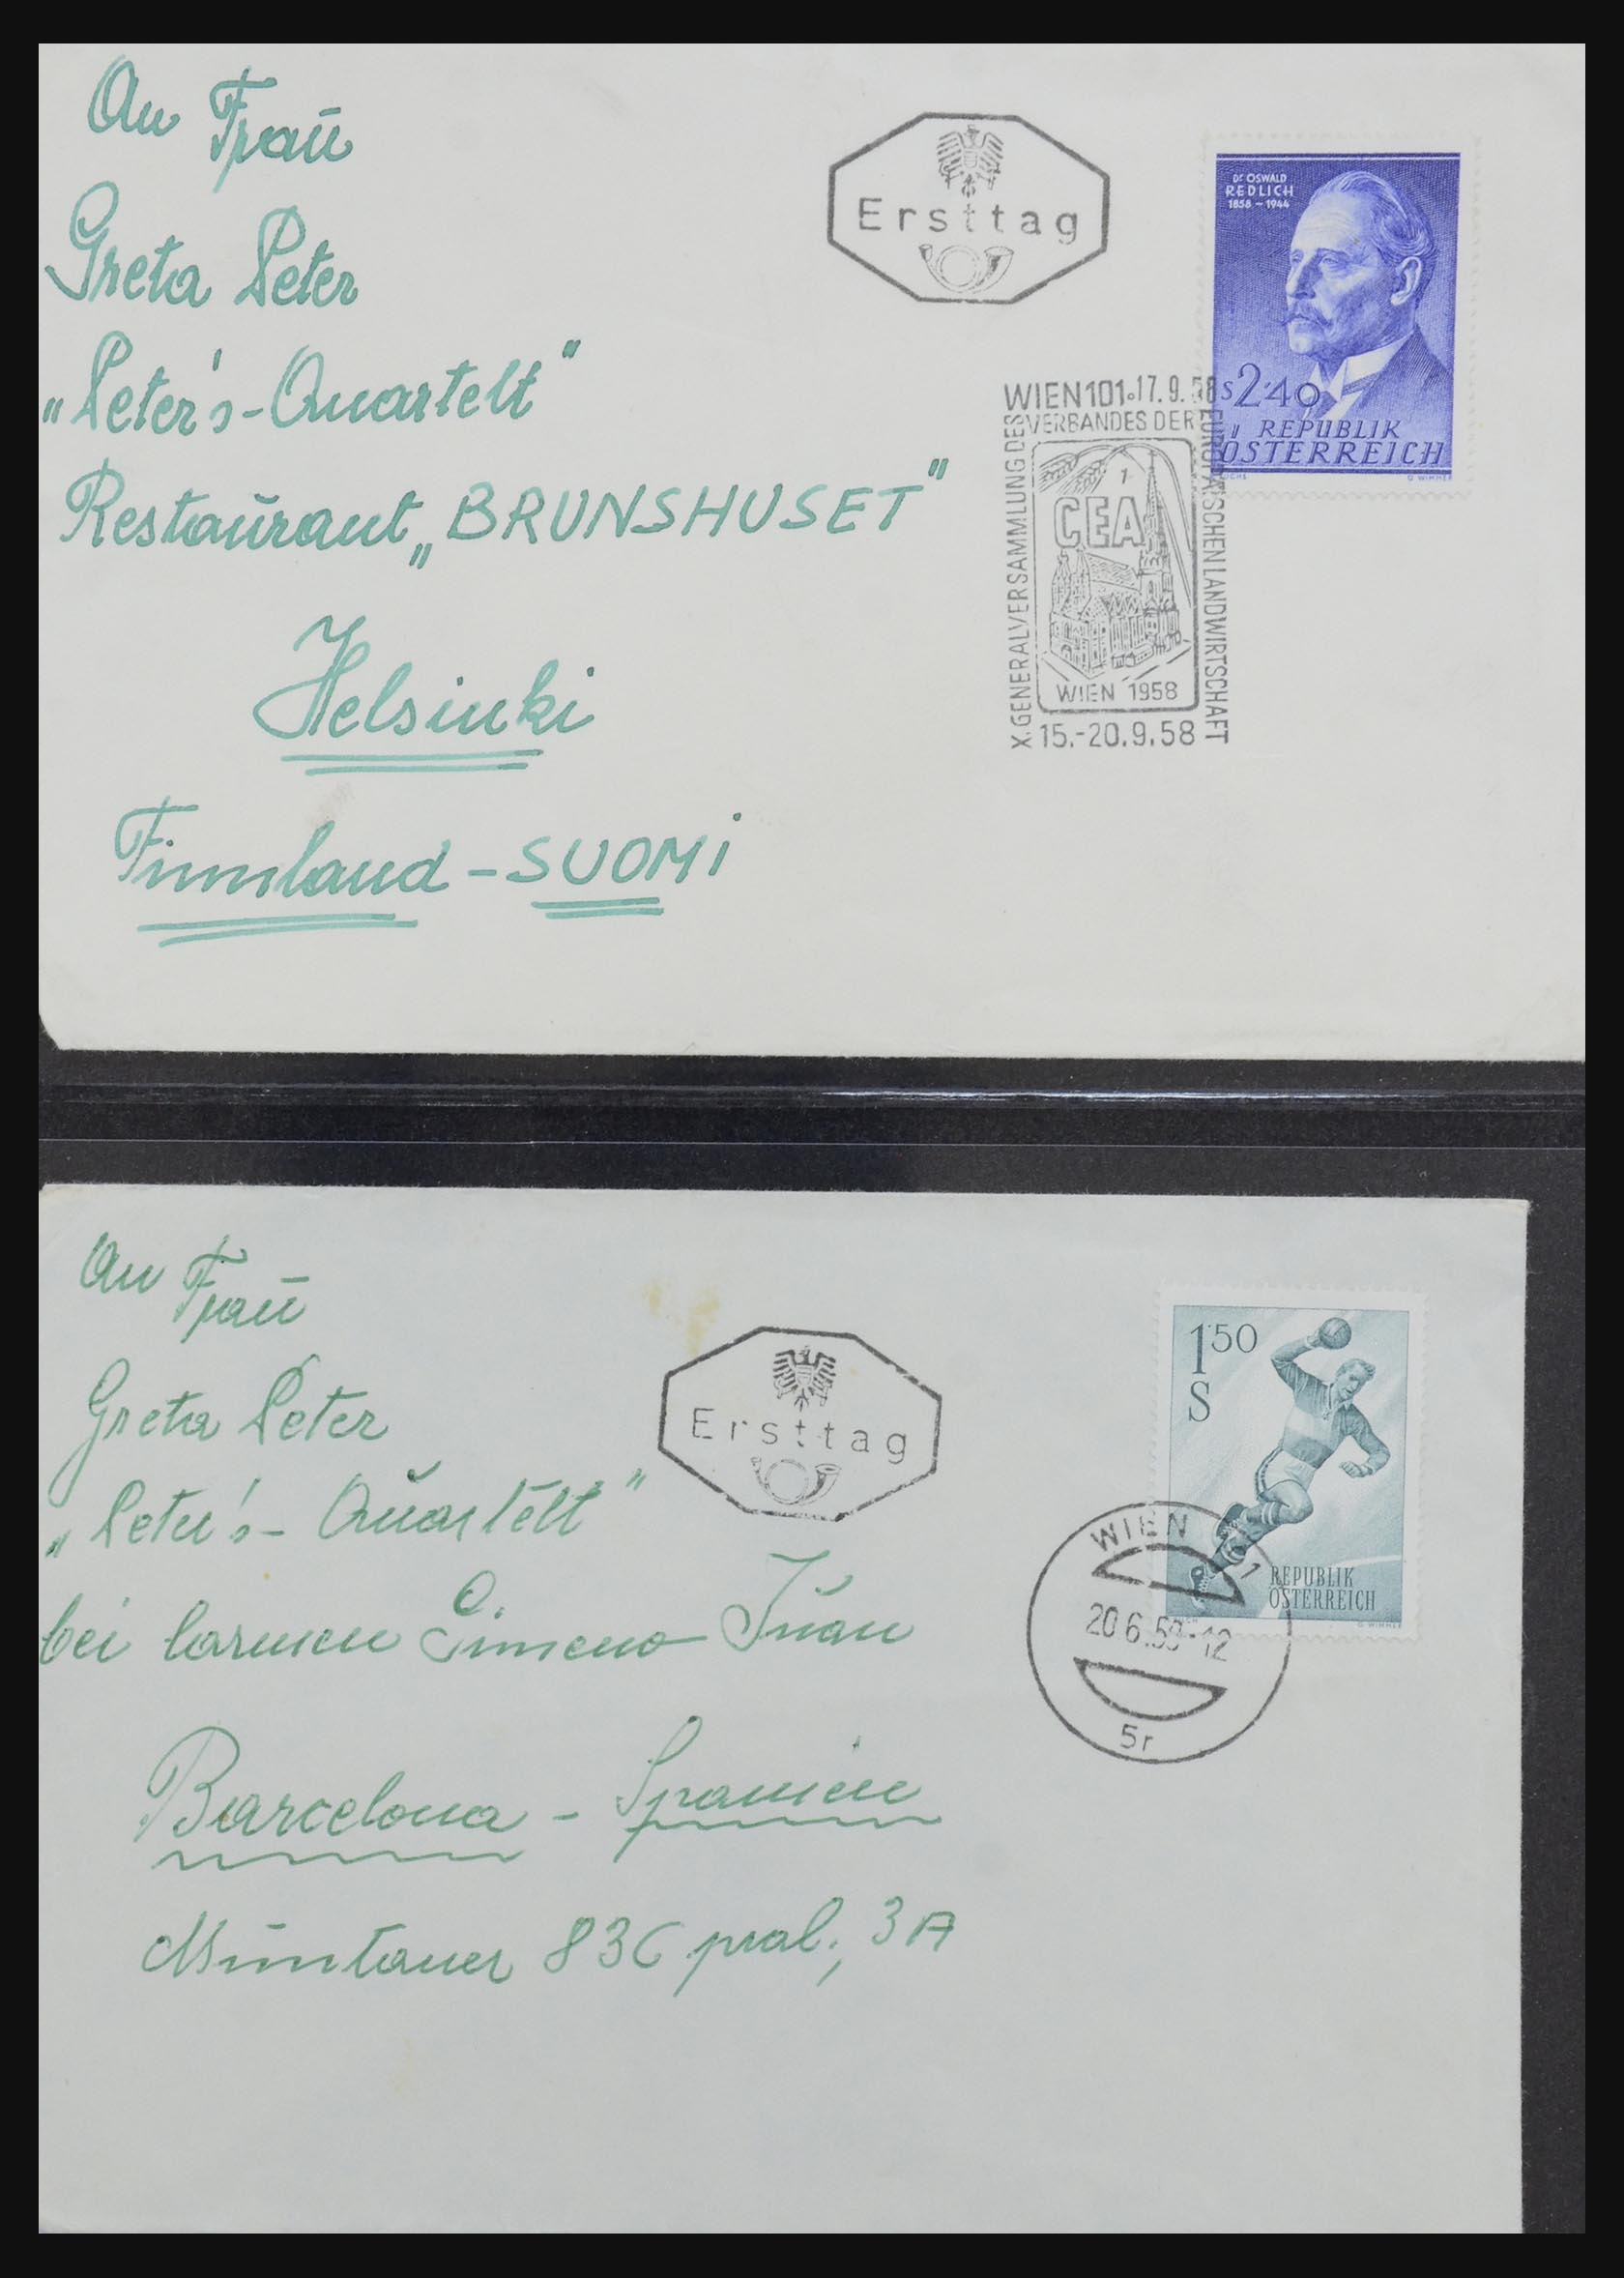 An Frau
Greta Peter
„Peter's-Quartett"
Restaurant „BRUNSHUSET"
Helsinki
Finnland - SUOMI
Ersttag
Dr OSWALD
REDLICH
1858 - 1944
S 2·40
REPUBLIK
ÖSTERREICH
G. WIMMER
WIEN 101 17.9.58
X. GENERALVERSAMMLUNG DES
VERBANDES DER
EUROPÄISCHEN LANDWIRTSCHAFT
1
CEA
WIEN 1958
15.-20.9.58
An Frau
Greta Peter
„Peter's - Quartett"
bei Carmen Gimeno Juan
Barcelona - Spanien
Muntaner 83C pral., 3A
Ersttag
1·50
S
REPUBLIK
ÖSTERREICH
G. WIMMER
WIEN 101
20.6.59-12
5r